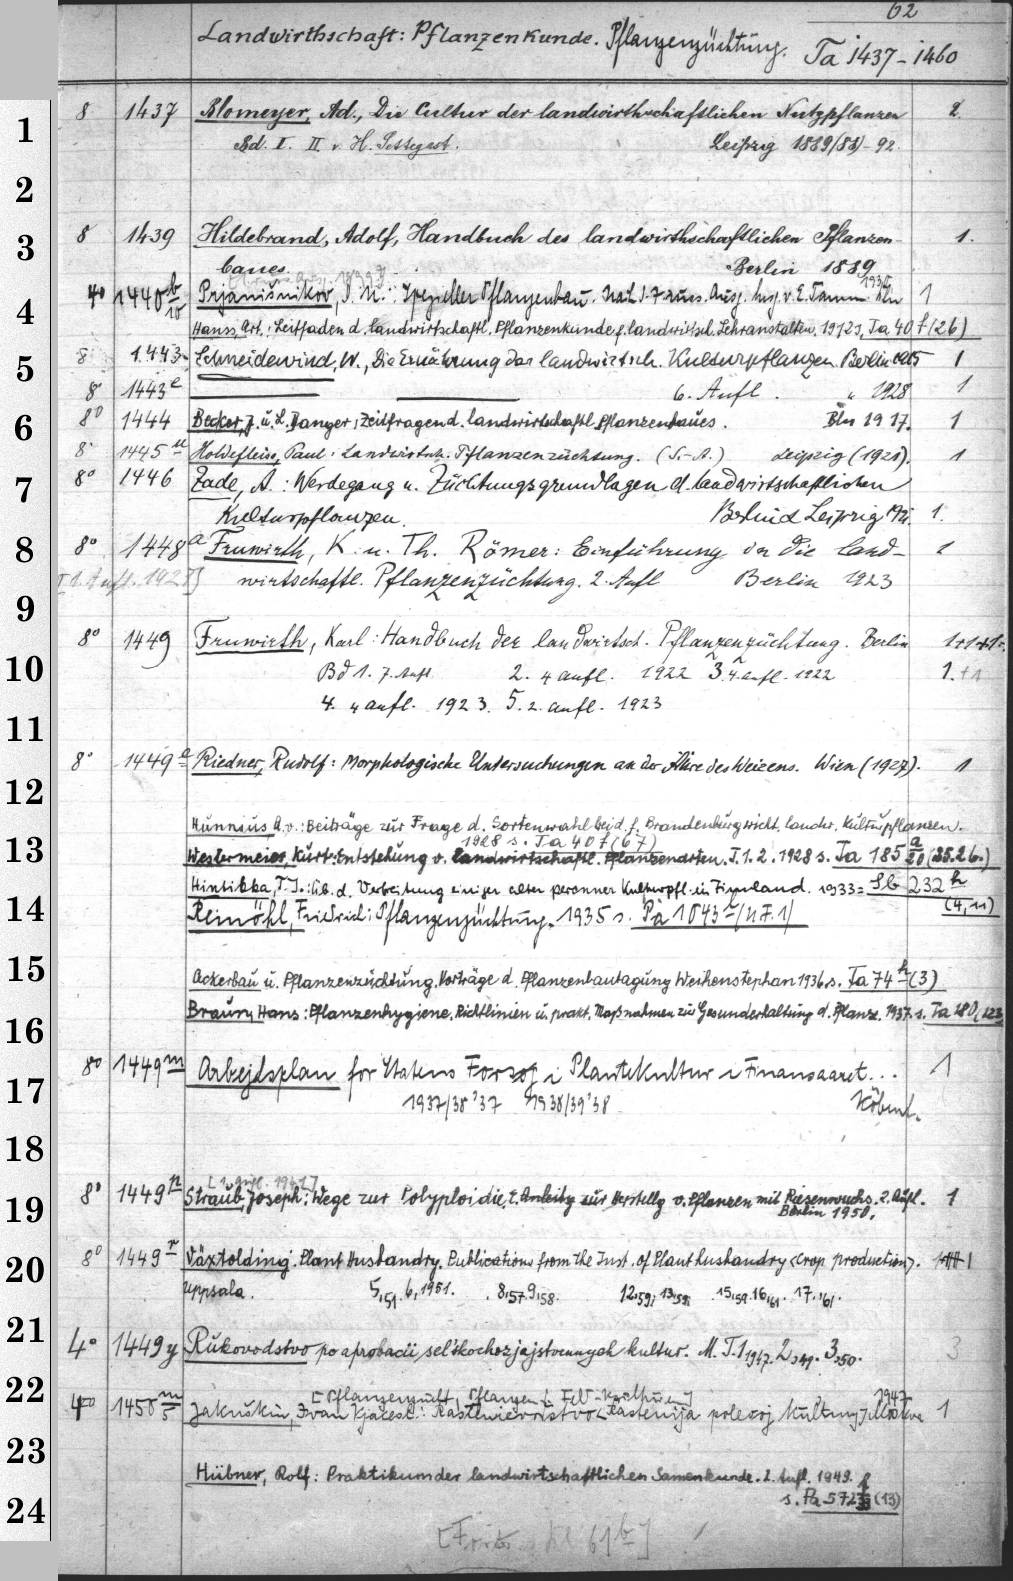 62
Landwirthschaft: Pflanzenkunde. Pflanzenzüchtung. Ta 1437-1460
1 8 1437 Blomeyer, Ad., Die Cultur der landwirthschaftlichen Nutzpflanzen 2.
Bd. I. II v. H. Settegast. Leipzig 1889/(88)-92.
2
3 8 1439 Hildebrand, Adolf, Handbuch des landwirthschaftlichen Pflanzen- 1.
baues. Berlin 1889
4 4o 1440 b/10 Prjanišnikov, D. N.: Spezieller Pflanzenbau. Nach d. 7. russ. Ausg. hrsg. v. E. Tamm Bln 1930 1
Hanss, Art.: Leitfaden d. landwirtschaftl. Pflanzenkunde f. landwirtsch. Lehranstalten, 1912 s. Ta 40 f (26)
5 8 1443 Schneidewind, W., Die Ernährung der landwirtsch. Kulturpflanzen. Berlin 1915 1
8 1443e 6. Aufl. " 1928 1
6 8o 1444 Becker, J. u. L. Danger, Zeitfragen d. landwirtschaftl. Pflanzenbaues. Bln 1917. 1
8 1445 u Holdefleiss, Paul: Landwirtsch. Pflanzenzüchtung. (S.-A.) Leipzig (1921). 1
7 8o 1446 Zade, A.: Werdegang u. Züchtungsgrundlagen d. landwirtschaftlichen
Kulturpflanzen. 1.
8 8o 1448 a Fruwirth, K. u. Th. Römer: Einführung in die land-
[1. Aufl. 1921] wirtschaftl. Pflanzenzüchtung. 2. Aufl Berlin 1923
9
8o 1449 Fruwirth, Karl: Handbuch der landwirtsch. Pflanzenzüchtung. Berlin 1+1+1+
10 Bd 1. 7. Aufl. 2. 4 aufl. 1922 3. 4. aufl. 1922 1.+1
4. 4 aufl. 1923. 5. 2. aufl. 1923
11
8o 1449 a Riedner, Rudolf: Morphologische Untersuchungen an der Ähre des Weizens. Wien (1927). 1
12
Hunnius, A. v.: Beiträge zur Frage d. Sortenwahl bei d. f. Brandenburg wicht. landw. Kulturpflanzen.
1928 s. Ta 40 f (67)
13 Westermeier, Kurt: Entstehung v. landwirtschaftl. Pflanzenarten. T. 1. 2. 1928 s. Ta 185 a/20 (25.26.)
Hintikka, T. J.: Üb. d. Verbreitung einiger alter Kulturpfl. in Finnland. 1933 = Sb 232 h
14 (4,11)
Reinöhl, Friedrich: Pflanzenzüchtung. 1935 s. Pa 1043 (N.F.1)
15 Ackerbau u. Pflanzenzüchtung. Vorträge d. Pflanzenbautagung Weihenstephan 1936. s. Ta 74 h (3)
16 Braun, Hans: Pflanzenhygiene. Richtlinien u. prakt. Maßnahmen zur Gesunderhaltung d. Pflanz. 1937. s. Ta 180 (123
8o 1449 m Arbejdsplan for Statens Forsøg i Plantekultur i Finansaaret... 1
17 1937/38 '37 1938/39 '38 Köbenh.
18
[1. Aufl. 1941]
19 8o 1449 p Straub, Joseph: Wege zur Polyploidie. E. Anleitg zur Herstellg v. Pflanzen mit Riesenwuchs. 2. Aufl. 1
Berlin 1950.
20 8o 1449 r Växtodling. Plant Husbandry. Publications from the Inst. of Plant husbandry (crop production).
Uppsala. 5,51. 6,1951. 8,57. 9,58. 12,59; 13,59; 15,59. 16,61. 17,61.
21 4o 1449 y Rukovodstvo po aprobacii sel'skochozjajstvennych kultur. M. T. 1 1947. 2,49. 3,50. 3
22 1947
4o 1458 m/5 Jakuškin, Ivan Vjačesl.: Rastenievodstvo (Rastenija polevoj kul'tury). Moskva 1
23
Hübner, Rolf: Praktikum der landwirtschaftlichen Samenkunde. 2. Aufl. 1949.
24 s. Pa 572 f (13)